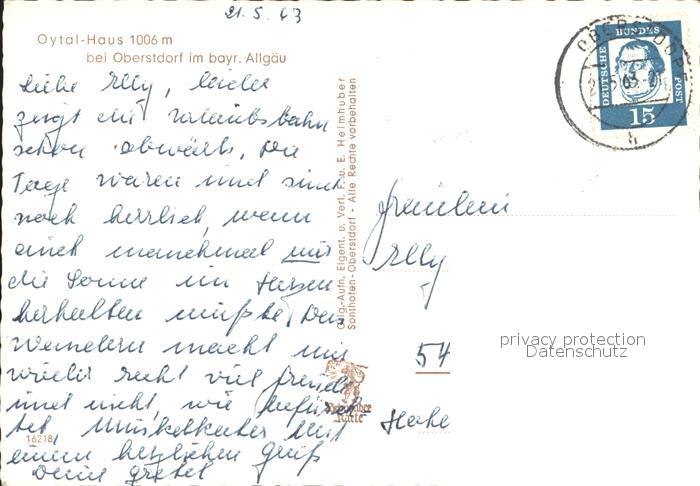 21.5.63
Oytal-Haus 1006 m
bei Oberstdorf im bayr. Allgäu
Liebe Elly, leider
zeigt die Urlaubsbahn
schon abwärts, die
Tage waren und sind
noch herrlich, wenn
auch manchmal nur
die Sonne im Herzen
herhalten mußte. Das
Wandern macht mir
wieder recht viel Freude
und nicht, wie befürch-
tet Muskelkater. Mit
einem herzlichen Gruß
Deine Gretel
16218
Orig.-Aufn. Eigent. u. Verl. F. u. E. Heimhuber
Sonthofen-Oberstdorf - Alle Rechte vorbehalten
Karte
DEUTSCHE BUNDES POST
15
OBERSTDORF
h
Fräulein
Elly
54
privacy protection
Datenschutz